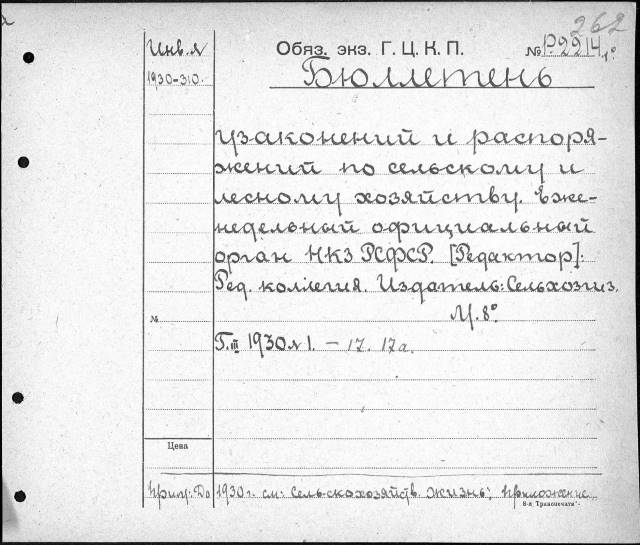 262
Инв. №
Обяз. экз. Г. Ц. К. П.
№ Р2214, 1°
1930-310.
Бюллетень
узаконений и распоря-
жений по сельскому и
лесному хозяйству. Еже-
недельный официальный
орган НКЗ РСФСР. [Редактор]:
Ред. коллегия. Издатель: Сельхозгиз.
М. 8°
№
Г. III 1930 № 1. – 17. 17а.
Цена
Прим: До 1930 г. см: Сельскохозяйств. жизнь; приложение
8-я „Транспечати".